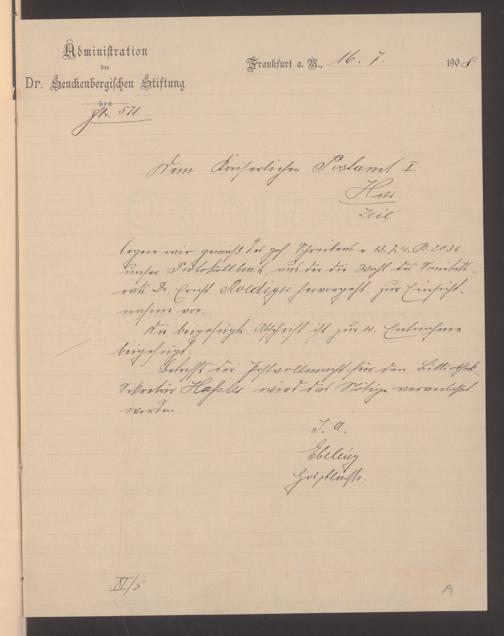 Administration
der
Dr. Senckenbergischen Stiftung
Frankfurt a. M., 16. 7. 1908
No. 571
Dem Kaiserlichen Postamt I.
Hier
Zeil
legen wir gemäß des gef. Schreibens v. 13.7.
unser Protokollbuch, aus der die Wahl des Sanitäts-
rats Dr. Ernst Roediger hervorgeht, zur Einsicht-
nahme vor.
Die beigefügte Abschrift ist zur
beigefügt.
Betreffs der Postvollmacht für den Bibliothek-
Sekretär wird das Nötige veranlaßt
werden.
I. A.
Ebeling
IV/5